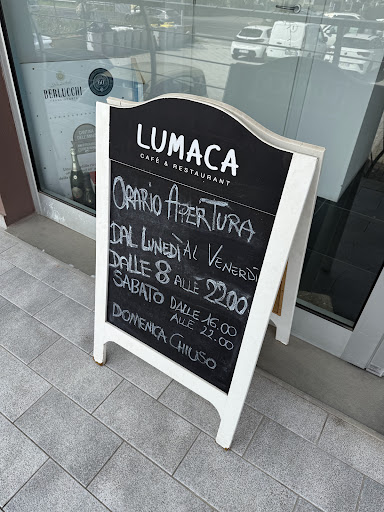 BERLUCCHI
LUMACA
CAFÈ & RESTAURANT
ORARIO APERTURA
DAL LUNEDÌ AL VENERDÌ
DALLE 8 ALLE 22.00
SABATO DALLE 16.00
ALLE 22.00
DOMENICA CHIUSO